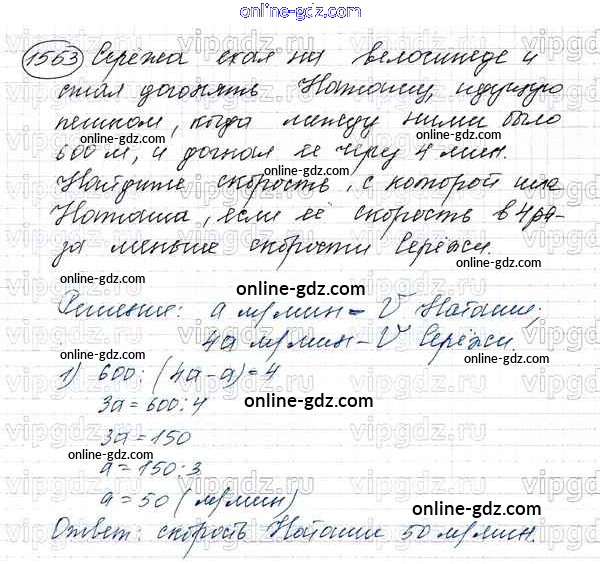 online-gdz.com
1553 Серёжа ехал на велосипеде и
стал догонять Наташу, идущую
пешком, когда между ними было
online-gdz.com
600 м, и догнал её через 4 мин.
Найдите скорость, с которой шла
online-gdz.com
Наташа, если её скорость в 4 ра-
за меньше скорости Серёжи.
online-gdz.com
online-gdz.com
Решение: a м/мин – V Наташи;
4a м/мин – V Серёжи.
online-gdz.com
1) 600 : (4a-a)=4
3a=600:4
online-gdz.com
3a=150
online-gdz.com
a=150:3
a=50 (м/мин)
online-gdz.com
Ответ: скорость Наташи 50 м/мин.
online-gdz.com
vipgdz.com